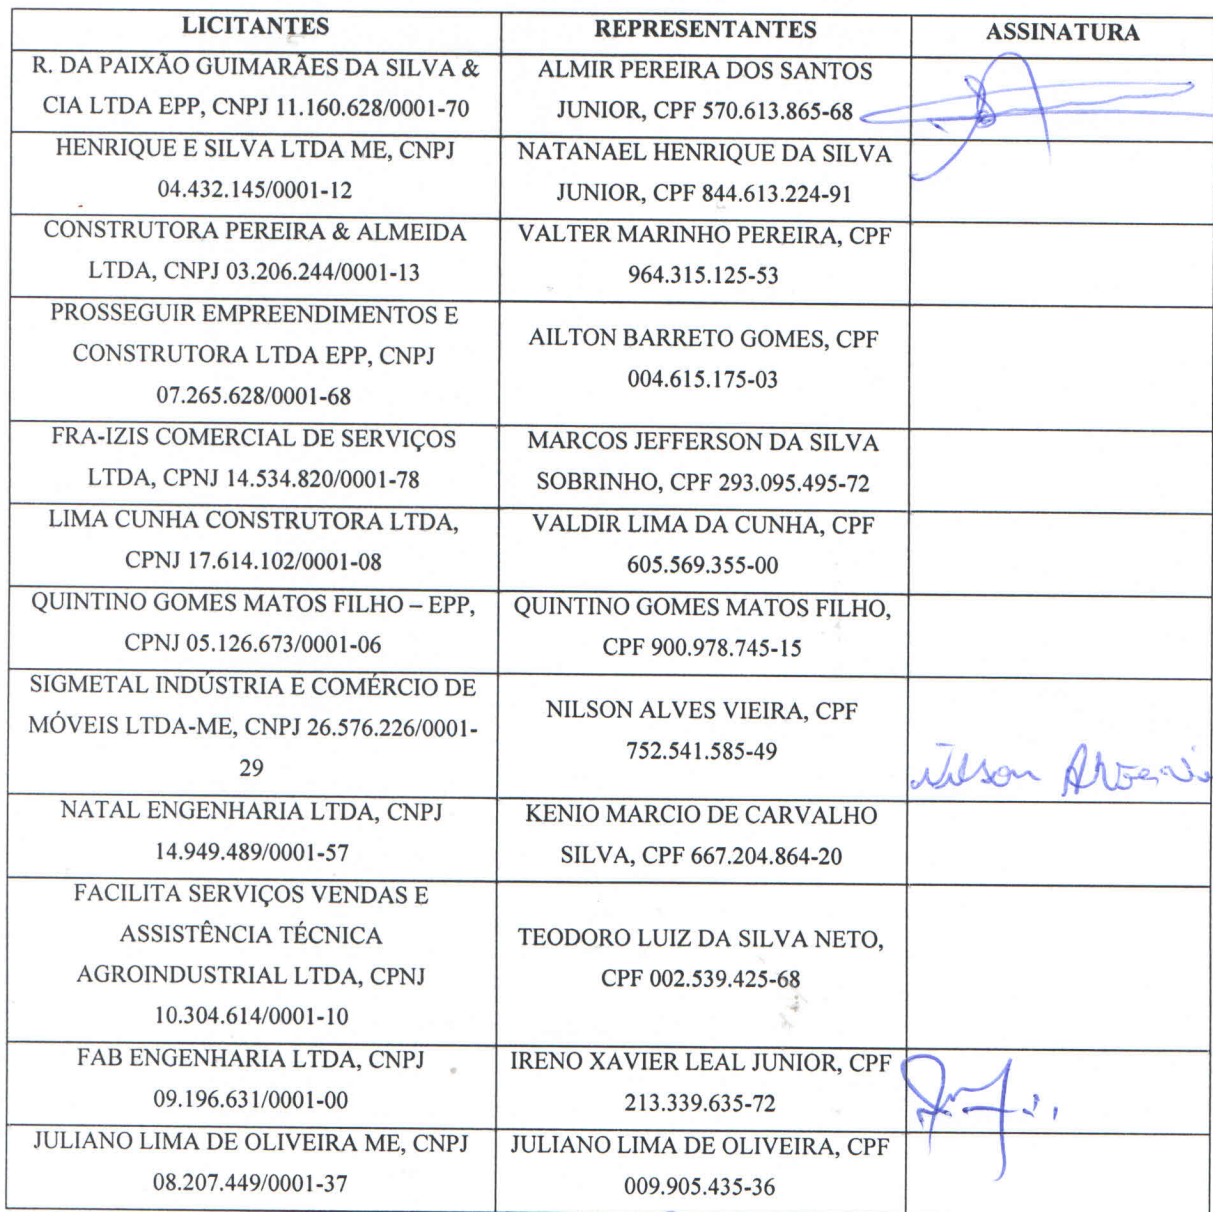 LICITANTES REPRESENTANTES ASSINATURA
R. DA PAIXÃO GUIMARÃES DA SILVA &
CIA LTDA EPP, CNPJ 11.160.628/0001-70
ALMIR PEREIRA DOS SANTOS
JUNIOR, CPF 570.613.865-68
HENRIQUE E SILVA LTDA ME, CNPJ
04.432.145/0001-12
NATANAEL HENRIQUE DA SILVA
JUNIOR, CPF 844.613.224-91
CONSTRUTORA PEREIRA & ALMEIDA
LTDA, CNPJ 03.206.244/0001-13
VALTER MARINHO PEREIRA, CPF
964.315.125-53
PROSSEGUIR EMPREENDIMENTOS E
CONSTRUTORA LTDA EPP, CNPJ
07.265.628/0001-68
AILTON BARRETO GOMES, CPF
004.615.175-03
FRA-IZIS COMERCIAL DE SERVIÇOS
LTDA, CPNJ 14.534.820/0001-78
MARCOS JEFFERSON DA SILVA
SOBRINHO, CPF 293.095.495-72
LIMA CUNHA CONSTRUTORA LTDA,
CPNJ 17.614.102/0001-08
VALDIR LIMA DA CUNHA, CPF
605.569.355-00
QUINTINO GOMES MATOS FILHO – EPP,
CPNJ 05.126.673/0001-06
QUINTINO GOMES MATOS FILHO,
CPF 900.978.745-15
SIGMETAL INDÚSTRIA E COMÉRCIO DE
MÓVEIS LTDA-ME, CNPJ 26.576.226/0001-
29
NILSON ALVES VIEIRA, CPF
752.541.585-49
Nilson
NATAL ENGENHARIA LTDA, CNPJ
14.949.489/0001-57
KENIO MARCIO DE CARVALHO
SILVA, CPF 667.204.864-20
FACILITA SERVIÇOS VENDAS E
ASSISTÊNCIA TÉCNICA
AGROINDUSTRIAL LTDA, CPNJ
10.304.614/0001-10
TEODORO LUIZ DA SILVA NETO,
CPF 002.539.425-68
FAB ENGENHARIA LTDA, CNPJ
09.196.631/0001-00
IRENO XAVIER LEAL JUNIOR, CPF
213.339.635-72
JULIANO LIMA DE OLIVEIRA ME, CNPJ
08.207.449/0001-37
JULIANO LIMA DE OLIVEIRA, CPF
009.905.435-36